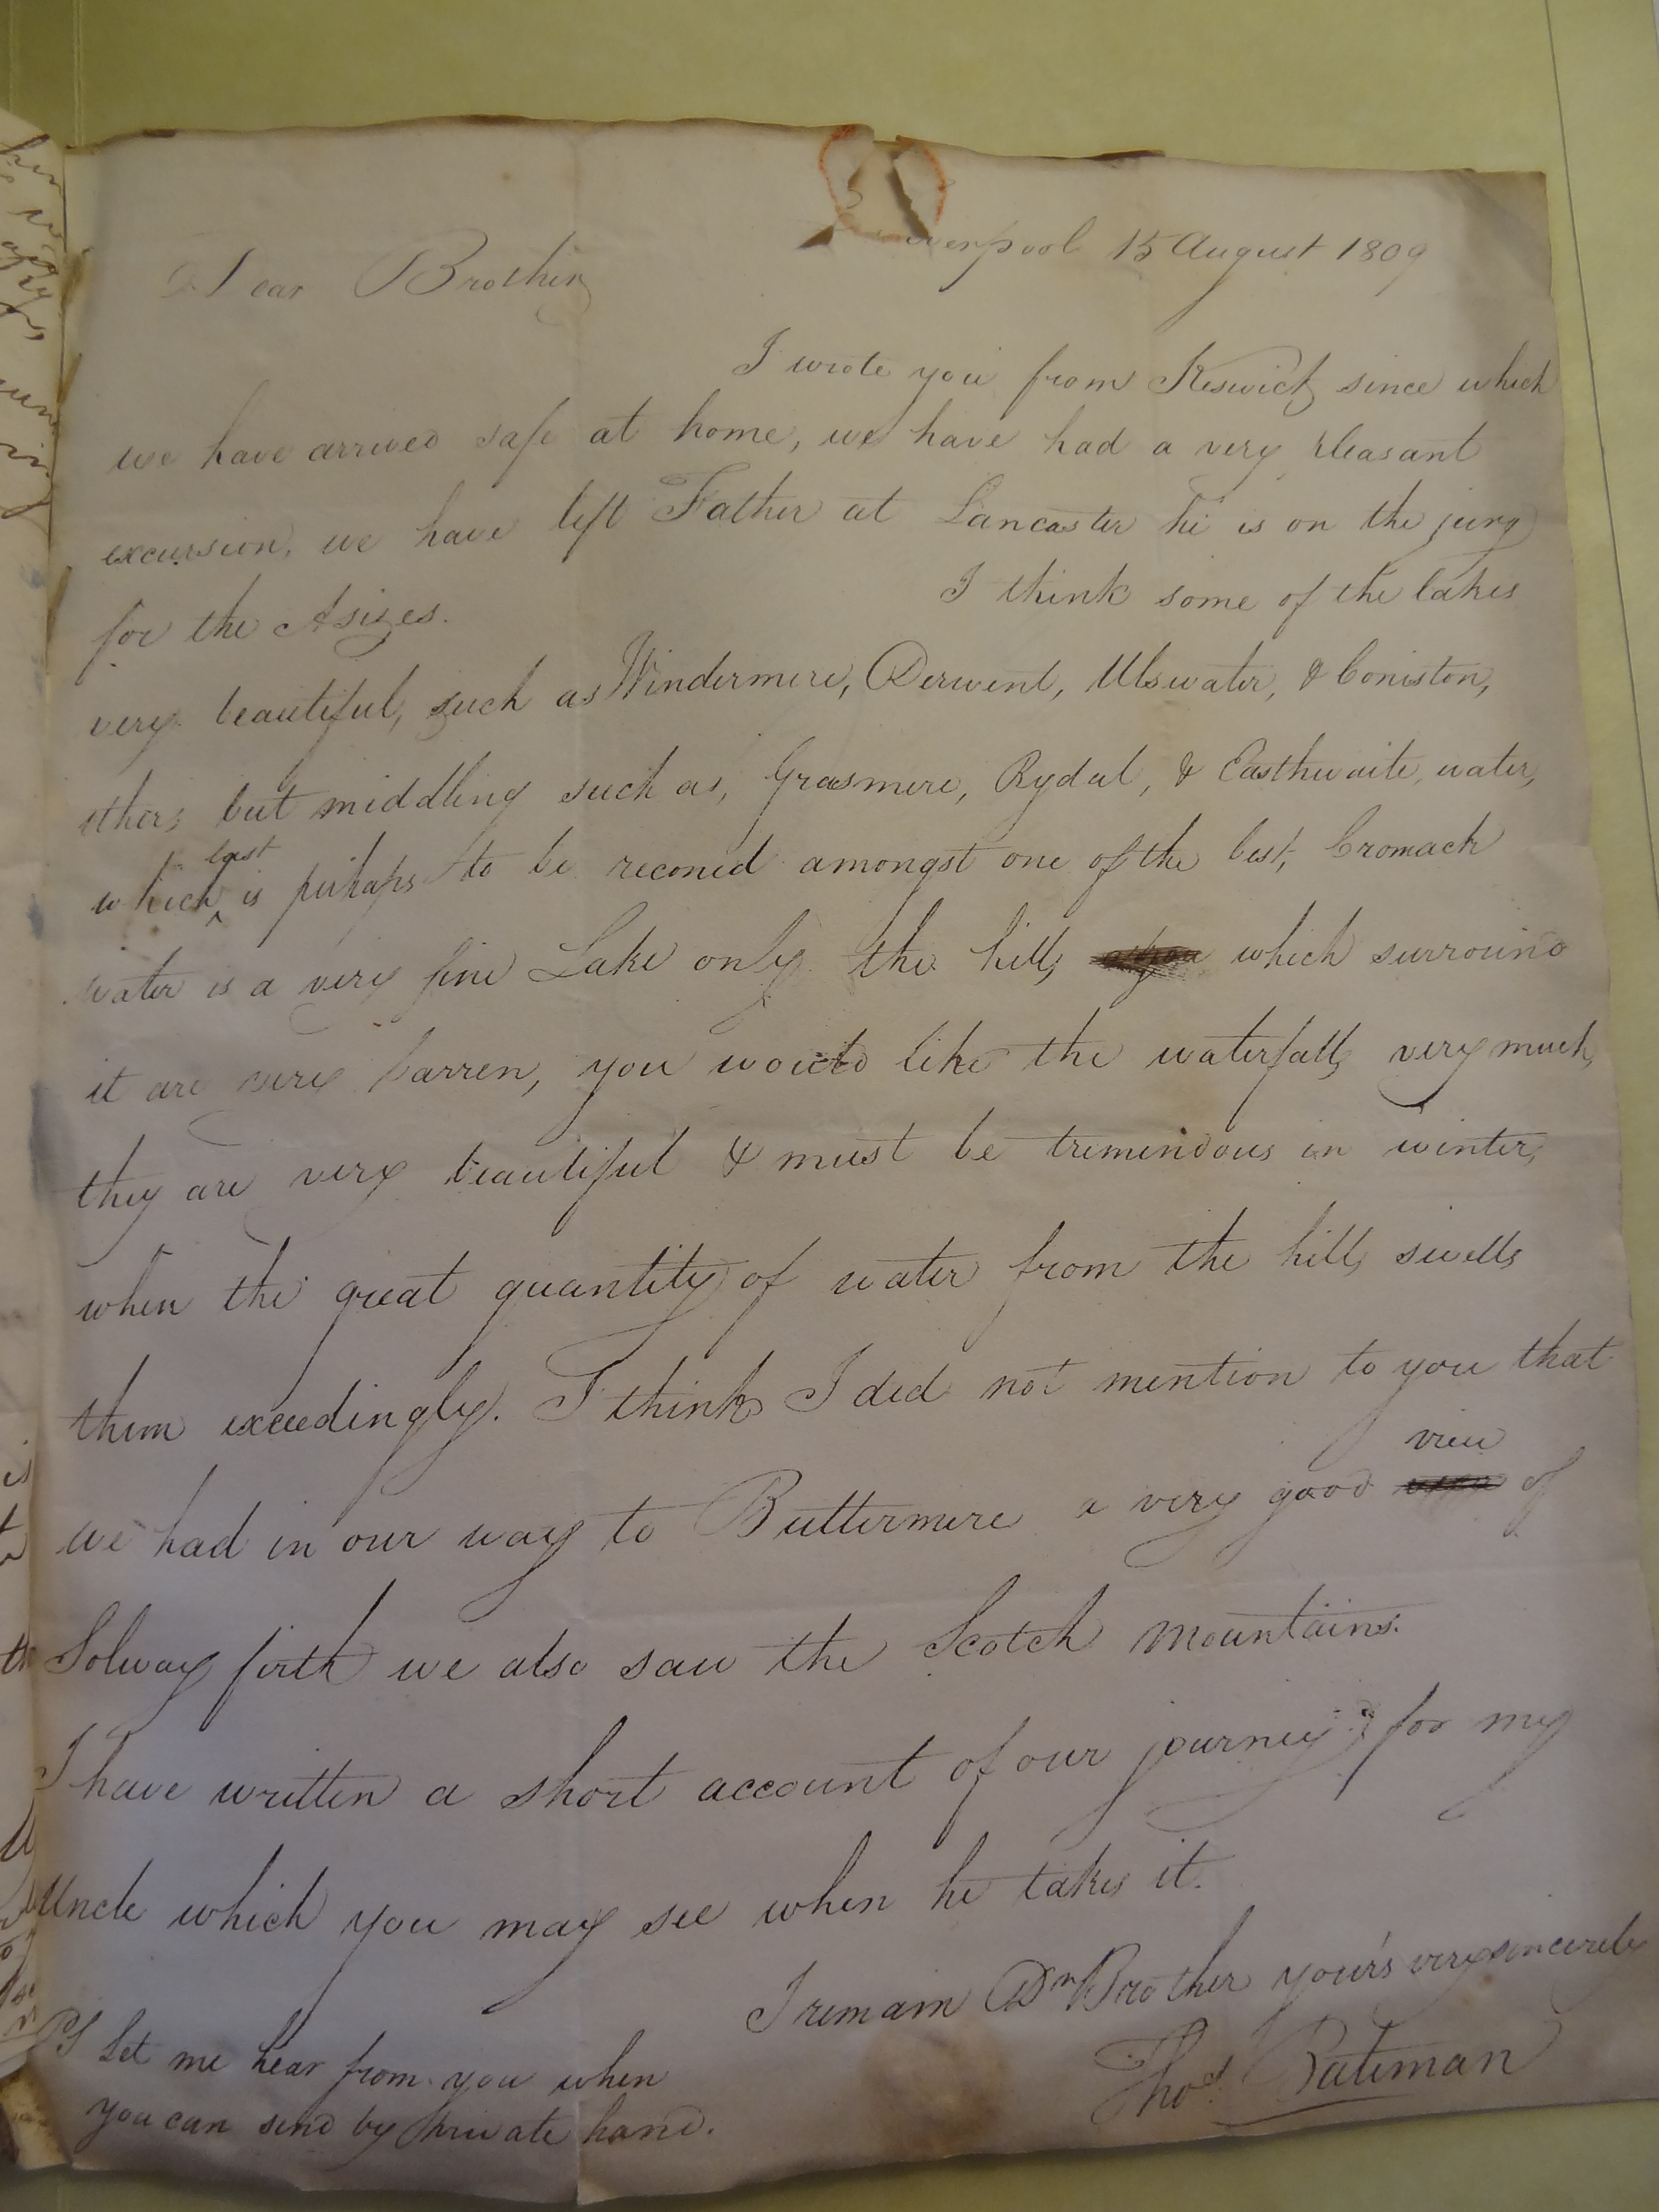 Liverpool 15 August 1809
Dear Brother
I wrote you from Keswick since which
we have arrived safe at home, we have had a very pleasant
excursion, we have left Father at Lancaster he is on the jury
for the Asizes. I think some of the lakes
very beautiful, such as Windermere, Derwent, Ulswater, & Coniston,
others but middling such as, Grasmere, Rydal, & Easthwaite, water,
which last is perhaps to be reconed amongst one of the best, Cromack
water is a very fine Lake only the hills which surround
it are very barren, you would like the waterfalls very much,
they are very beautiful & must be tremendous in winter,
when the great quantity of water from the hills swells
them exceedingly. I think I did not mention to you that
we had in our way to Buttermere a very good view of
Solway firth we also saw the Scotch Mountains.
I have written a short account of our journey for my
Uncle which you may see when he takes it.
I remain Dr Brother your's very sincerely
Thos. Bateman
PS Let me hear from you when
you can send by private hand.